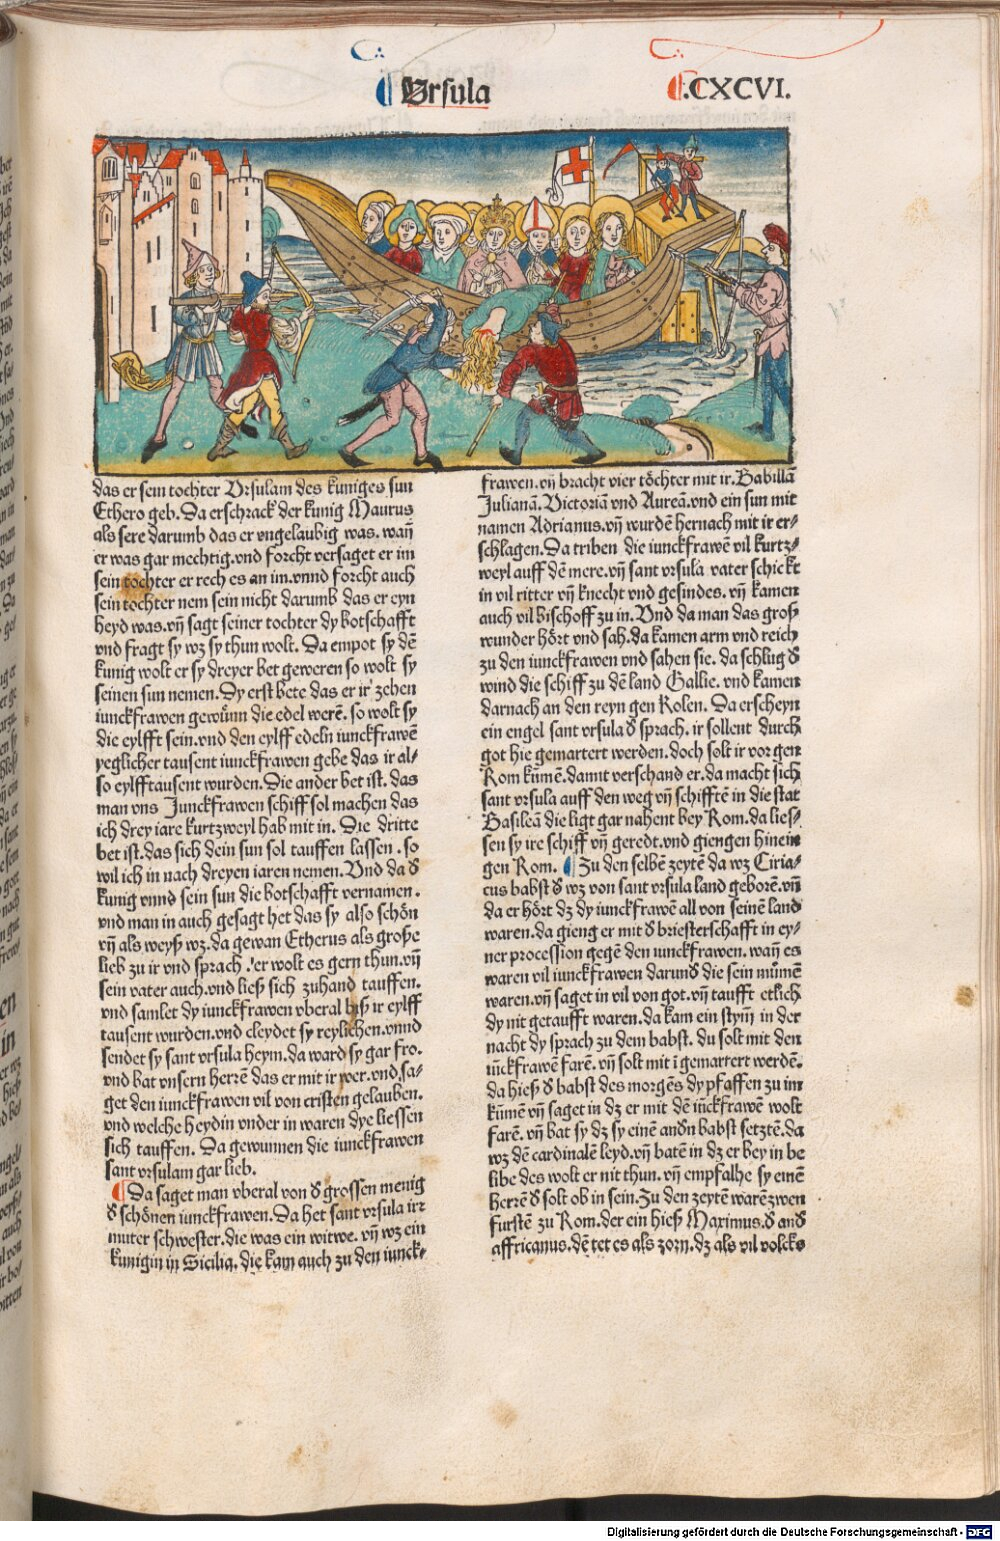 Ursula
.CXCVI.
das er sein tochter Ursulam des kuniges sun
Ethero geb. Da erschrack der kunig Maurus
als sere darumb das er vngelaubig was. wañ
er was gar mechtig. vnd forcht versaget er im
sein tochter er rech es an im. vnnd forcht auch
sein tochter nem sein nicht darumb das er eyn
heyd was. vñ sagt seiner tochter dy botschafft
vnd fragt sy wz sy thun wolt. Da empot sy dē
kunig wolt er sy dreyer bet geweren so wolt sy
seinen sun nemen. Dy erst bete das er ir zehen
iunckfrawen gewūnn die edel werē. so wolt sy
die eylfft sein. vnd den eylff edeln iunckfrawē
yeglicher tausent iunckfrawen gebe das ir al-
so eylfftausent wurden. Die ander bet ist. das
man vns Junckfrawen schiff sol machen das
ich drey iare kurtzweyl hab mit in. Die dritte
bet ist. das sich dein sun sol tauffen lassen. so
wil ich in nach dreyen iaren nemen. Und da d̕
kunig vnnd sein sun die botschafft vernamen.
vnd man in auch gesagt het das sy also schön
vñ als weyß wz. da gewan Etherus als große
lieb zu ir vnd sprach. er wolt es gern thun. vñ
sein vater auch. vnd ließ sich zuhand tauffen.
vnd samlet dy iunckfrawen vberal biß ir eylff
tausent wurden. vnd cleydet sy reylichen. vnnd
sendet sy sant vrsula heym. da ward sy gar fro.
vnd bat vnsern herrē das er mit ir wer. vnd sa-
get den iunckfrawen vil von cristen gelauben.
vnd welche heydin vnder in waren dye liessen
sich tauffen. Da gewunnen die iunckfrawen
sant vrsulam gar lieb.
Da saget man vberal von d̕ grossen menig
d̕ schönen iunckfrawen. Da het sant vrsula irr
muter schwester. die was ein witwe. vñ wz ein
kunigin in Sicilia. die kam auch zu den iunck-
frawen. vñ bracht vier töchter mit ir. Babillā
Julianā. Victoriā vnd Aureā. vnd ein sun mit
namen Adrianus. vñ wurdē hernach mit ir er-
schlagen. Da triben die iunckfrawē vil kurtz-
weyl auff dē mere. vñ sant vrsula vater schickt
in vil ritter vñ knecht vnd gesindes. vñ kamen
auch vil bischoff zu in. Und da man das groß
wunder hört vnd sah. da kamen arm vnd reich
zu den iunckfrawen vnd sahen sie. da schlug d̕
wind die schiff zu dē land Gallie. vnd kamen
darnach an den reyn gen Kolen. Da erscheyn
ein engel sant vrsula d̕ sprach. ir sollent durch
got hie gemartert werden. doch solt ir vor gen
Rom kūmē. damit verschand er. da macht sich
sant vrsula auff den weg vñ schifftē in die stat
Basileā die ligt gar nahent bey Rom. da lies-
sen sy ire schiff vñ geredt. vnd giengen hinein
gen Rom. Zu den selbē zeytē da wz Ciria-
cus babst d̕ wz von sant vrsula land geborē. vñ
da er hört dz dy iunckfrawē all von seinē land
waren. da gieng er mit d̕ briesterschafft in ey-
ner procession gegē den iunckfrawen. wañ es
waren vil iunckfrawen darund̕ die sein mūmē
waren. vñ saget in vil von got. vñ taufft etlich
dy nit getaufft waren. da kam ein stym̄ in der
nacht dy sprach zu dem babst. du solt mit den
iūckfrawē farē. vñ solt mit ī gemartert werdē.
da hieß d̕ babst des morgēs dy pfaffen zu im
kūmē vñ saget in dz er mit dē iūckfrawē wolt
farē. vñ bat sy dz sy einē and̕n babst setztē. da
wz dē cardinalē leyd. vñ batē in dz er bey in be
libe des wolt er nit thun. vñ empfalhe sy einē
herrē d̕ solt ob in sein. Zu den zeytē warē zwen
fürstē zu Rom. der ein hieß Maximus. d̕ and̕
affricanus. dē tet es als zorn. dz als vil volcks
Digitalisierung gefördert durch die Deutsche Forschungsgemeinschaft - DFG